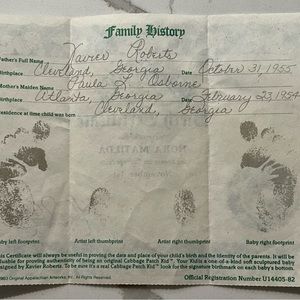 Family History
Father's Full Name Xavier Roberts
Birthplace Cleveland, Georgia Date October 31, 1955
Mother's Maiden Name Paula L. Osborne
Birthplace Atlanta, Georgia Date February 23, 1954
Residence at time child was born Cleveland, Georgia
NORA MATILDA
November 1st
Baby left footprint Artist left thumbprint Artist right thumbprint Baby right footprint
This Certificate will always be useful in proving the date and place of your child's birth and the identity of the parents. It will be
valuable for proving authenticity of being an original Cabbage Patch Kid™. Your 'Kid' is one-of-a-kind soft sculptured baby
signed by Xavier Roberts. To be sure it's a real Cabbage Patch Kid™ look for the signature birthmark on each baby's bottom.
1983 Original Appalachian Artworks, Inc. Official Registration Number U14405-82